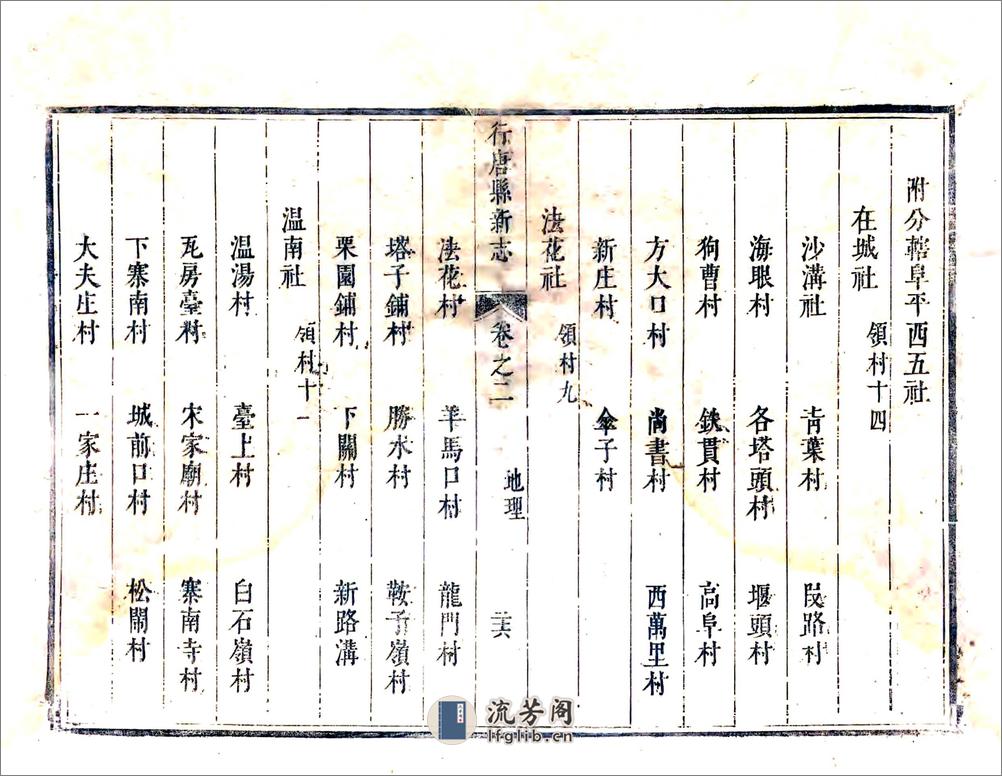 附分轄阜平西五社
在城社 領村十四
沙溝社 青葉村 段路村
海眼村 各塔頭村 堰頭村
狗曹村 鉄貫村 高阜村
方大口村 尚書村 西萬里村
新庄村 傘子村
法花社 領村九
行唐縣新志 卷之二 地理 二六
法花村 羊馬口村 龍門村
塔子鋪村 勝水村 鞍子嶺村
栗園鋪村 下關村 新路溝
温南社 領村十一
温湯村 臺上村 白石嶺村
瓦房臺村 宋家廟村 寨南寺村
下寨南村 城前口村 松關村
大夫庄村 一家庄村
流芳阁
lfglib.cn